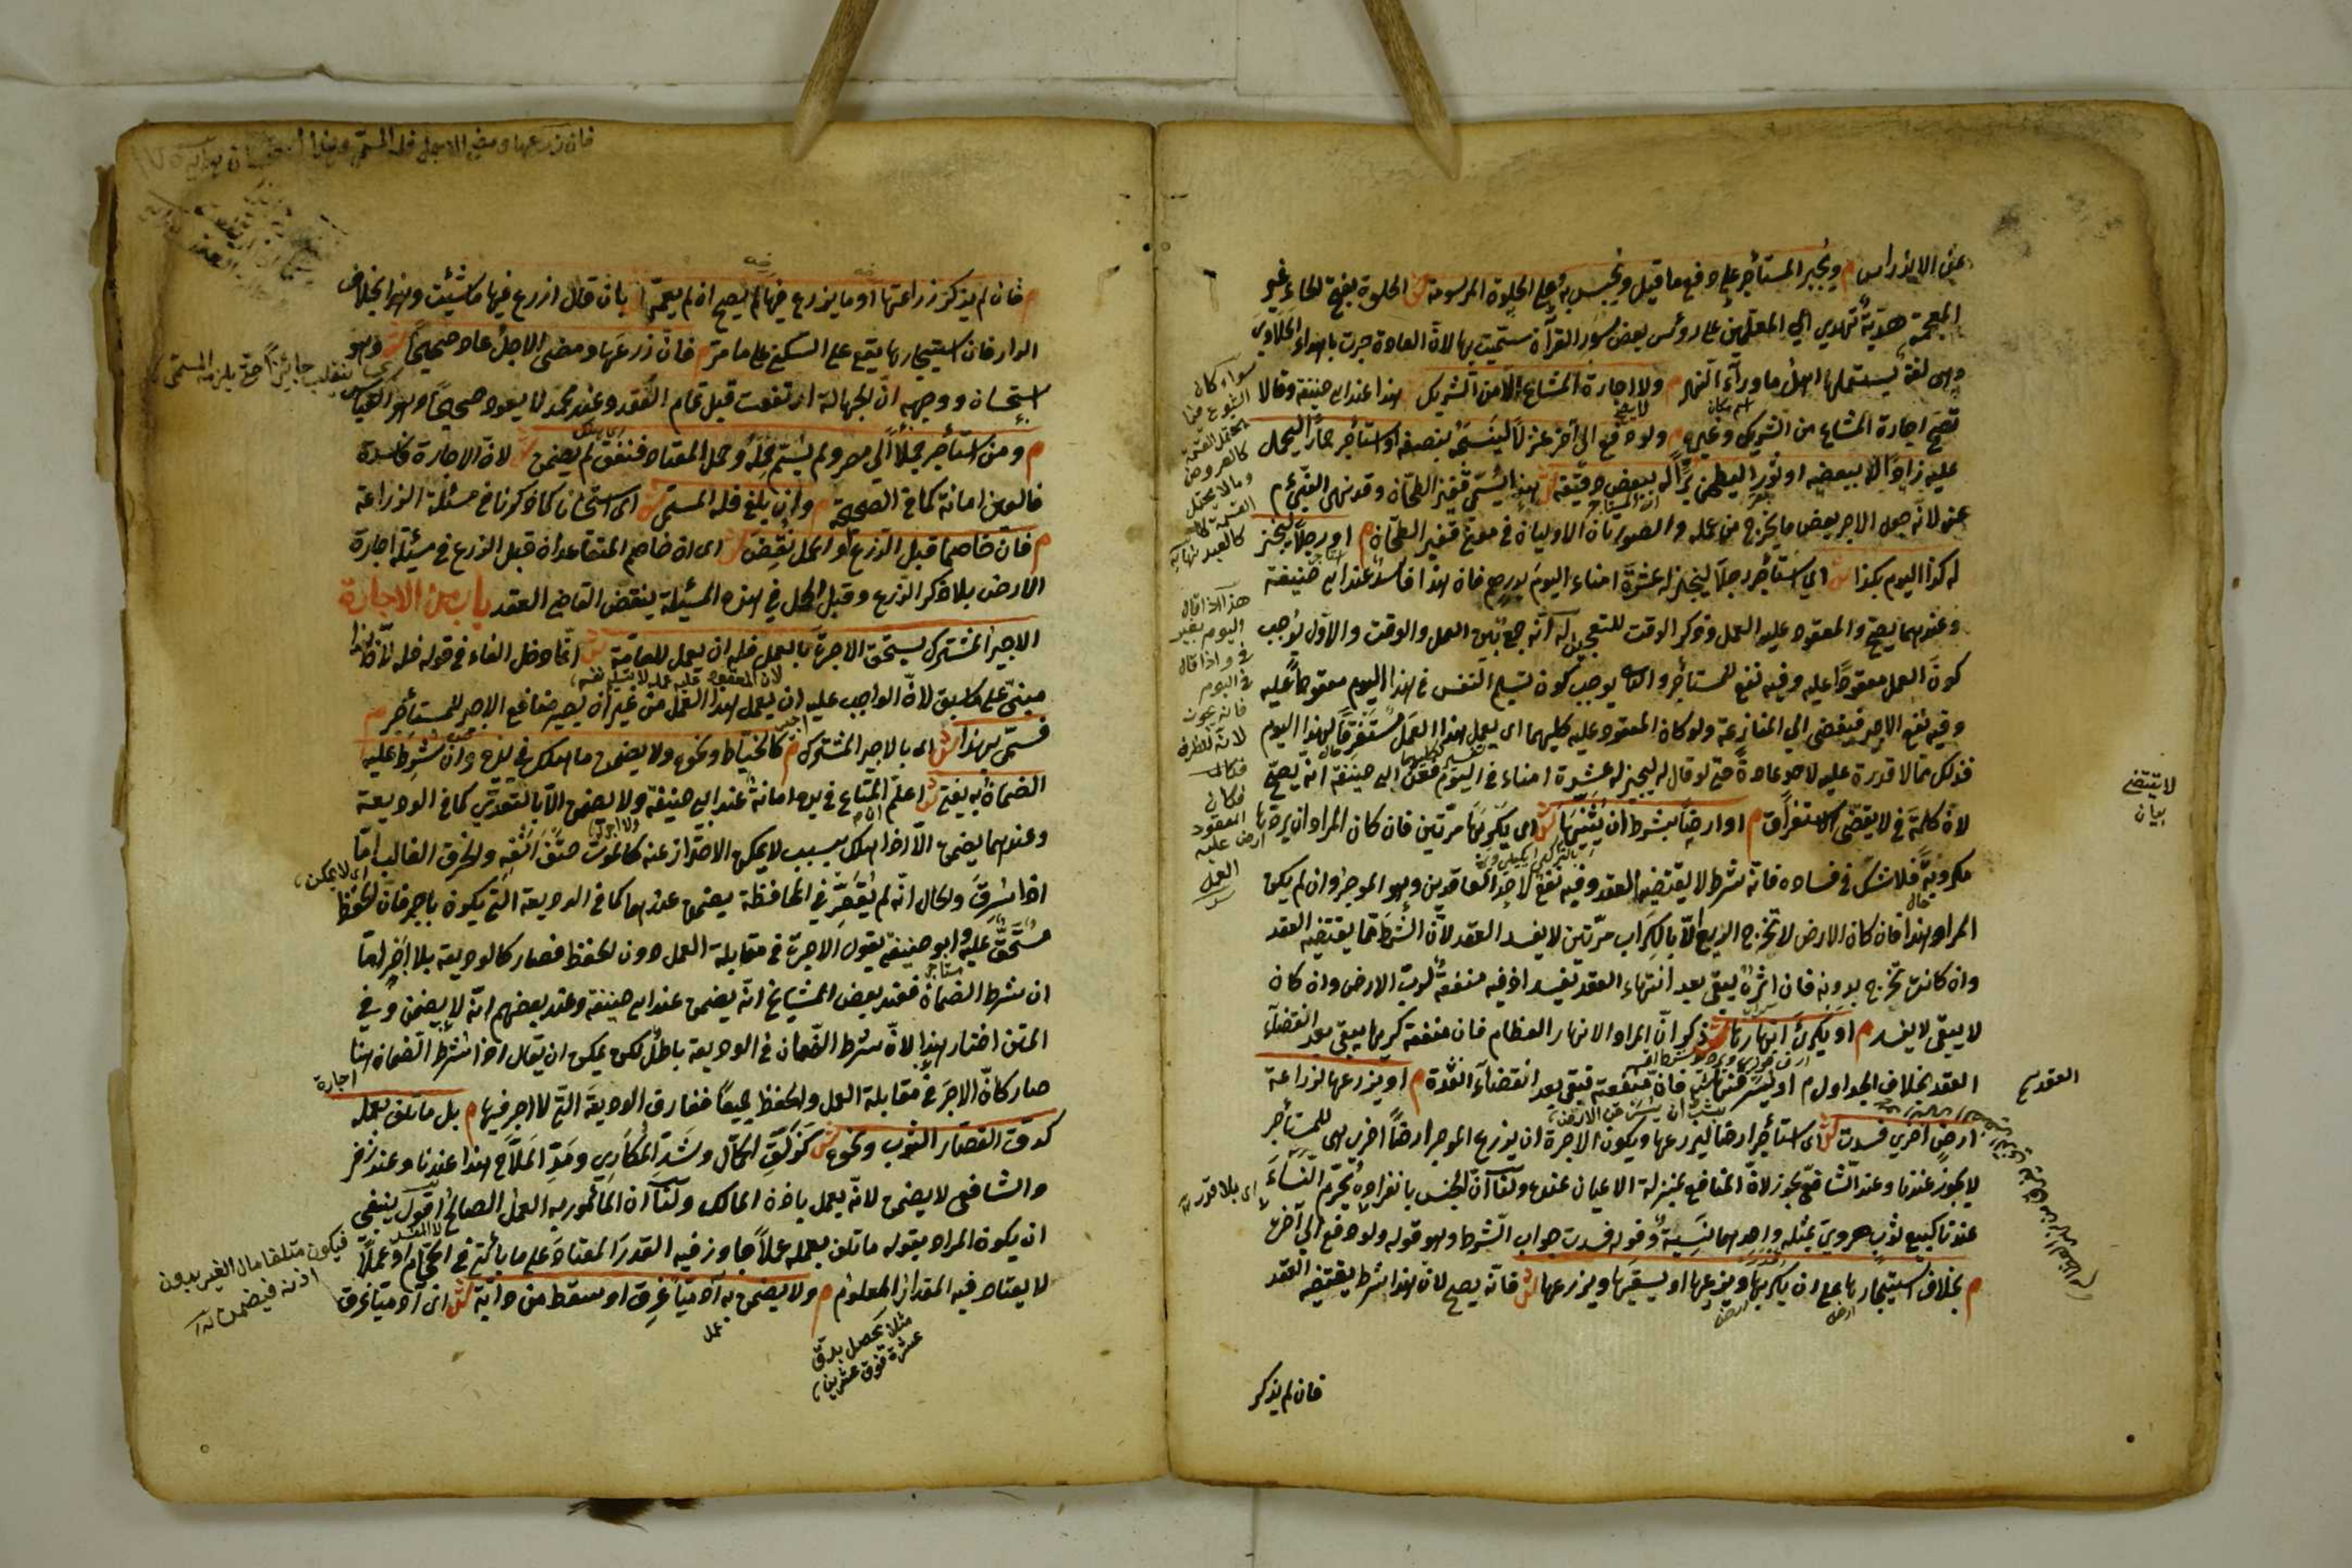 عن الاندراس م ويجبر المستأجر على دفع ما قيل ويحبس به وعلى الحلوة المرسومة ش الحلوة بفتح الحاء غير
المعجمة هدية تهدى الى المعلمين على رؤس بعض سور القرآن سميت بها لان العادة جرت باهداء الحلاوى
وهى لغة يستعملها اهل ما ورآء النهر م ولا اجارة المشاع الا من الشريك ش هذا عند ابى حنيفة وقالا
تصح اجارة المشاع من الشريك وغيره م ولو دفع الى آخر غزلا لينسجه بنصفه او استأجر حمارا ليحمل
عليه زادا له ببعضه او ثورا ليطحن برا له ببعض دقيقه ش هذا يسمى قفيز الطحان وقد نهى النبى م
عنه لانه جعل الاجر بعض ما يخرج من عمله والصورتان الاوليان فى معنى قفيز الطحان م او رجلا ليخبز
له كذا اليوم بكذا ش اى استأجر رجلا ليخبز له عشرة امناء اليوم بدرهم فان هذا فاسد عند ابى حنيفة
وعندهما يصح والمعقود عليه العمل وذكر الوقت للتعجيل له انه جمع بين العمل والوقت والاول يوجب
كون العمل معقودا عليه وفيه نفع للمستأجر والثانى يوجب كون تسليم النفس فى هذا اليوم معقودا عليه
وفيه نفع الاجير فيفضى الى المنازعة ولو كان المعقود عليه كليهما اى يعمل هذا العمل مستغرقا لهذا اليوم
فذلك مما لا قدرة عليه لاحد عادة حتى لو قال له ليخبز له عشرة امناء فى اليوم فعن ابى حنيفة انه يصح
لان كلمة فى لا يقتضى الاستغراق م او ارضا بشرط ان يثنيها ش اى يكربها مرتين فان كان المراد ان يردها
مكروبة فلا شك فى فساده فانه شرط لا يقتضيه العقد وفيه نفع لاحد المتعاقدين وهو الموجر وان لم يكن
المراد هذا فان كان الارض لا تخرج الريع الا بالكراب مرتين لا يفسد العقد لان الشرط مما يقتضيه العقد
وان كانت تخرج بدونه فان اثره يبقى بعد انتهاء العقد تفسد اذ فيه منفعة لرب الارض وان كان
لا يبقى لا يفسد م او يكرى انهارها ش ذكر ان المراد الانهار العظام فان منفعة كريها يبقى بعد انقضآء
العقد بخلاف الجداول م او يسرقنها ش فان منفعته تبقى بعد انقضآء المدة م او يزرعها بزراعة
ارض اخرى فسدت ش اى استأجر ارضا ليزرعها ويكون الاجرة ان يزرع الموجر ارضا اخرى هى للمستأجر
لا يجوز عندنا وعند الشافعى يجوز لان المنافع بمنزلة الاعيان عنده ولنا ان الجنس بانفراده يحرم النساء
عندنا كبيع ثوب هروى بمثله واحدهما نسيئة وقوله فسدت جواب الشرط وهو قوله ولو دفع الى آخر
م بخلاف استيجارها على ان يكربها ويزرعها او يسقيها ويزرعها ش فانه يصح لان هذا شرط يقتضيه العقد
فان لم يذكر
لا يقتضى
بيان
العقد
سواء كان
كالعروض
وما لا يحتمل
هذا اذا قال
اليوم بغير
فى واذا قال
فى اليوم
فانه يجوز
لانه للظرف
فكان
المعقود
عليه
العمل
م فان لم يذكر زراعتها او ما يزرع فيها لم يصح ان لم يعمم ش بان قال ازرع فيها ما شئت وهذا بخلاف
الدار فان استيجارها يقع على السكنى على ما مر م فان زرعها ومضى الاجل عاد صحيحا ش وهو
استحسان ووجهه ان الجهالة ارتفعت قبل تمام العقد وعند محمد لا يعود صحيحا وهو القياس
م ومن استأجر جملا الى مصر ولم يسم حمله وحمل المعتاد فنفق لم يضمن ش لان الاجارة فاسدة
فالعين امانة كما فى الصحيحة م وان بلغ فله المسمى ش اى استحسانا كما ذكرنا فى مسئلة الزراعة
م فان خاصما قبل الزرع او الحمل نقض ش اى ان خاصم المتعاقدان قبل الزرع فى مسئلة اجارة
الارض بلا ذكر الزرع وقبل الحمل فى هذه المسئلة ينقض القاضى العقد باب من الاجارة
الاجير المشترك يستحق الاجرة بالعمل فله ان يعمل للعامة ش انما ادخل الفاء فى قوله فله لان هذا
مبنى على ما سبق لان الواجب عليه ان يعمل هذا العمل من غير ان يصير منافع الاجير للمستأجر م
فسمى بهذا ش اى بالاجير المشترك م كالخياط ونحوه ولا يضمن ما هلك فى يده وان شرط عليه
الضمان به يفتى ش اعلم ان المتاع فى يده امانة عند ابى حنيفة ولا يضمن الا بالتعدى كما فى الوديعة
وعندهما يضمن الا اذا هلك بسبب لا يمكن الاحتراز عنه كالموت حتف انفه والحرق الغالب اما
اذا سرق والحال انه لم يقصر فى المحافظة يضمن عندهما كما فى الوديعة التى يكون باجر فان الحفظ
مستحق عليه وابو حنيفة يقول الاجرة فى مقابلة العمل دون الحفظ فصار كالوديعة بلا اجر اما
ان شرط الضمان فعند بعض المشايخ انه يضمن عند ابى حنيفة وعند بعضهم انه لا يضمن وفى
المتن اختار هذا لان شرط الضمان فى الوديعة باطل لكن يمكن ان يقال اذا شرط الضمان هنا
صار كان الاجر فى مقابلة العمل والحفظ جميعا ففارق الوديعة التى لا اجر فيها م بل ما تلف بعمله
كدق القصار الثوب ونحوه ش كزلق الحمال وشد المكارى ومد الملاح هذا عندنا وعند زفر
والشافعى لا يضمن لانه يعمل باذن المالك ولنا ان المأمور به العمل الصالح اقول ينبغى
ان يكون المراد بقوله ما تلف بعمله عملا جاوز فيه القدر المعتاد على ما يأتى فى الحجام او عملا
لا يعتاد فيه المقدار المعلوم م ولا يضمن به آدميا غرق او سقط من دابة ش اى آدميا غرق
فان زرعها ومضى الاجل فله المسمى
ينقلب جائزا حتى يلزمه المسمى
اى لا يمكن
اجارة
فيكون متلفا مال الغير بدون
اذنه فيضمن
مثلا يحصل بدق
عشرة فوق عشرين
عمل